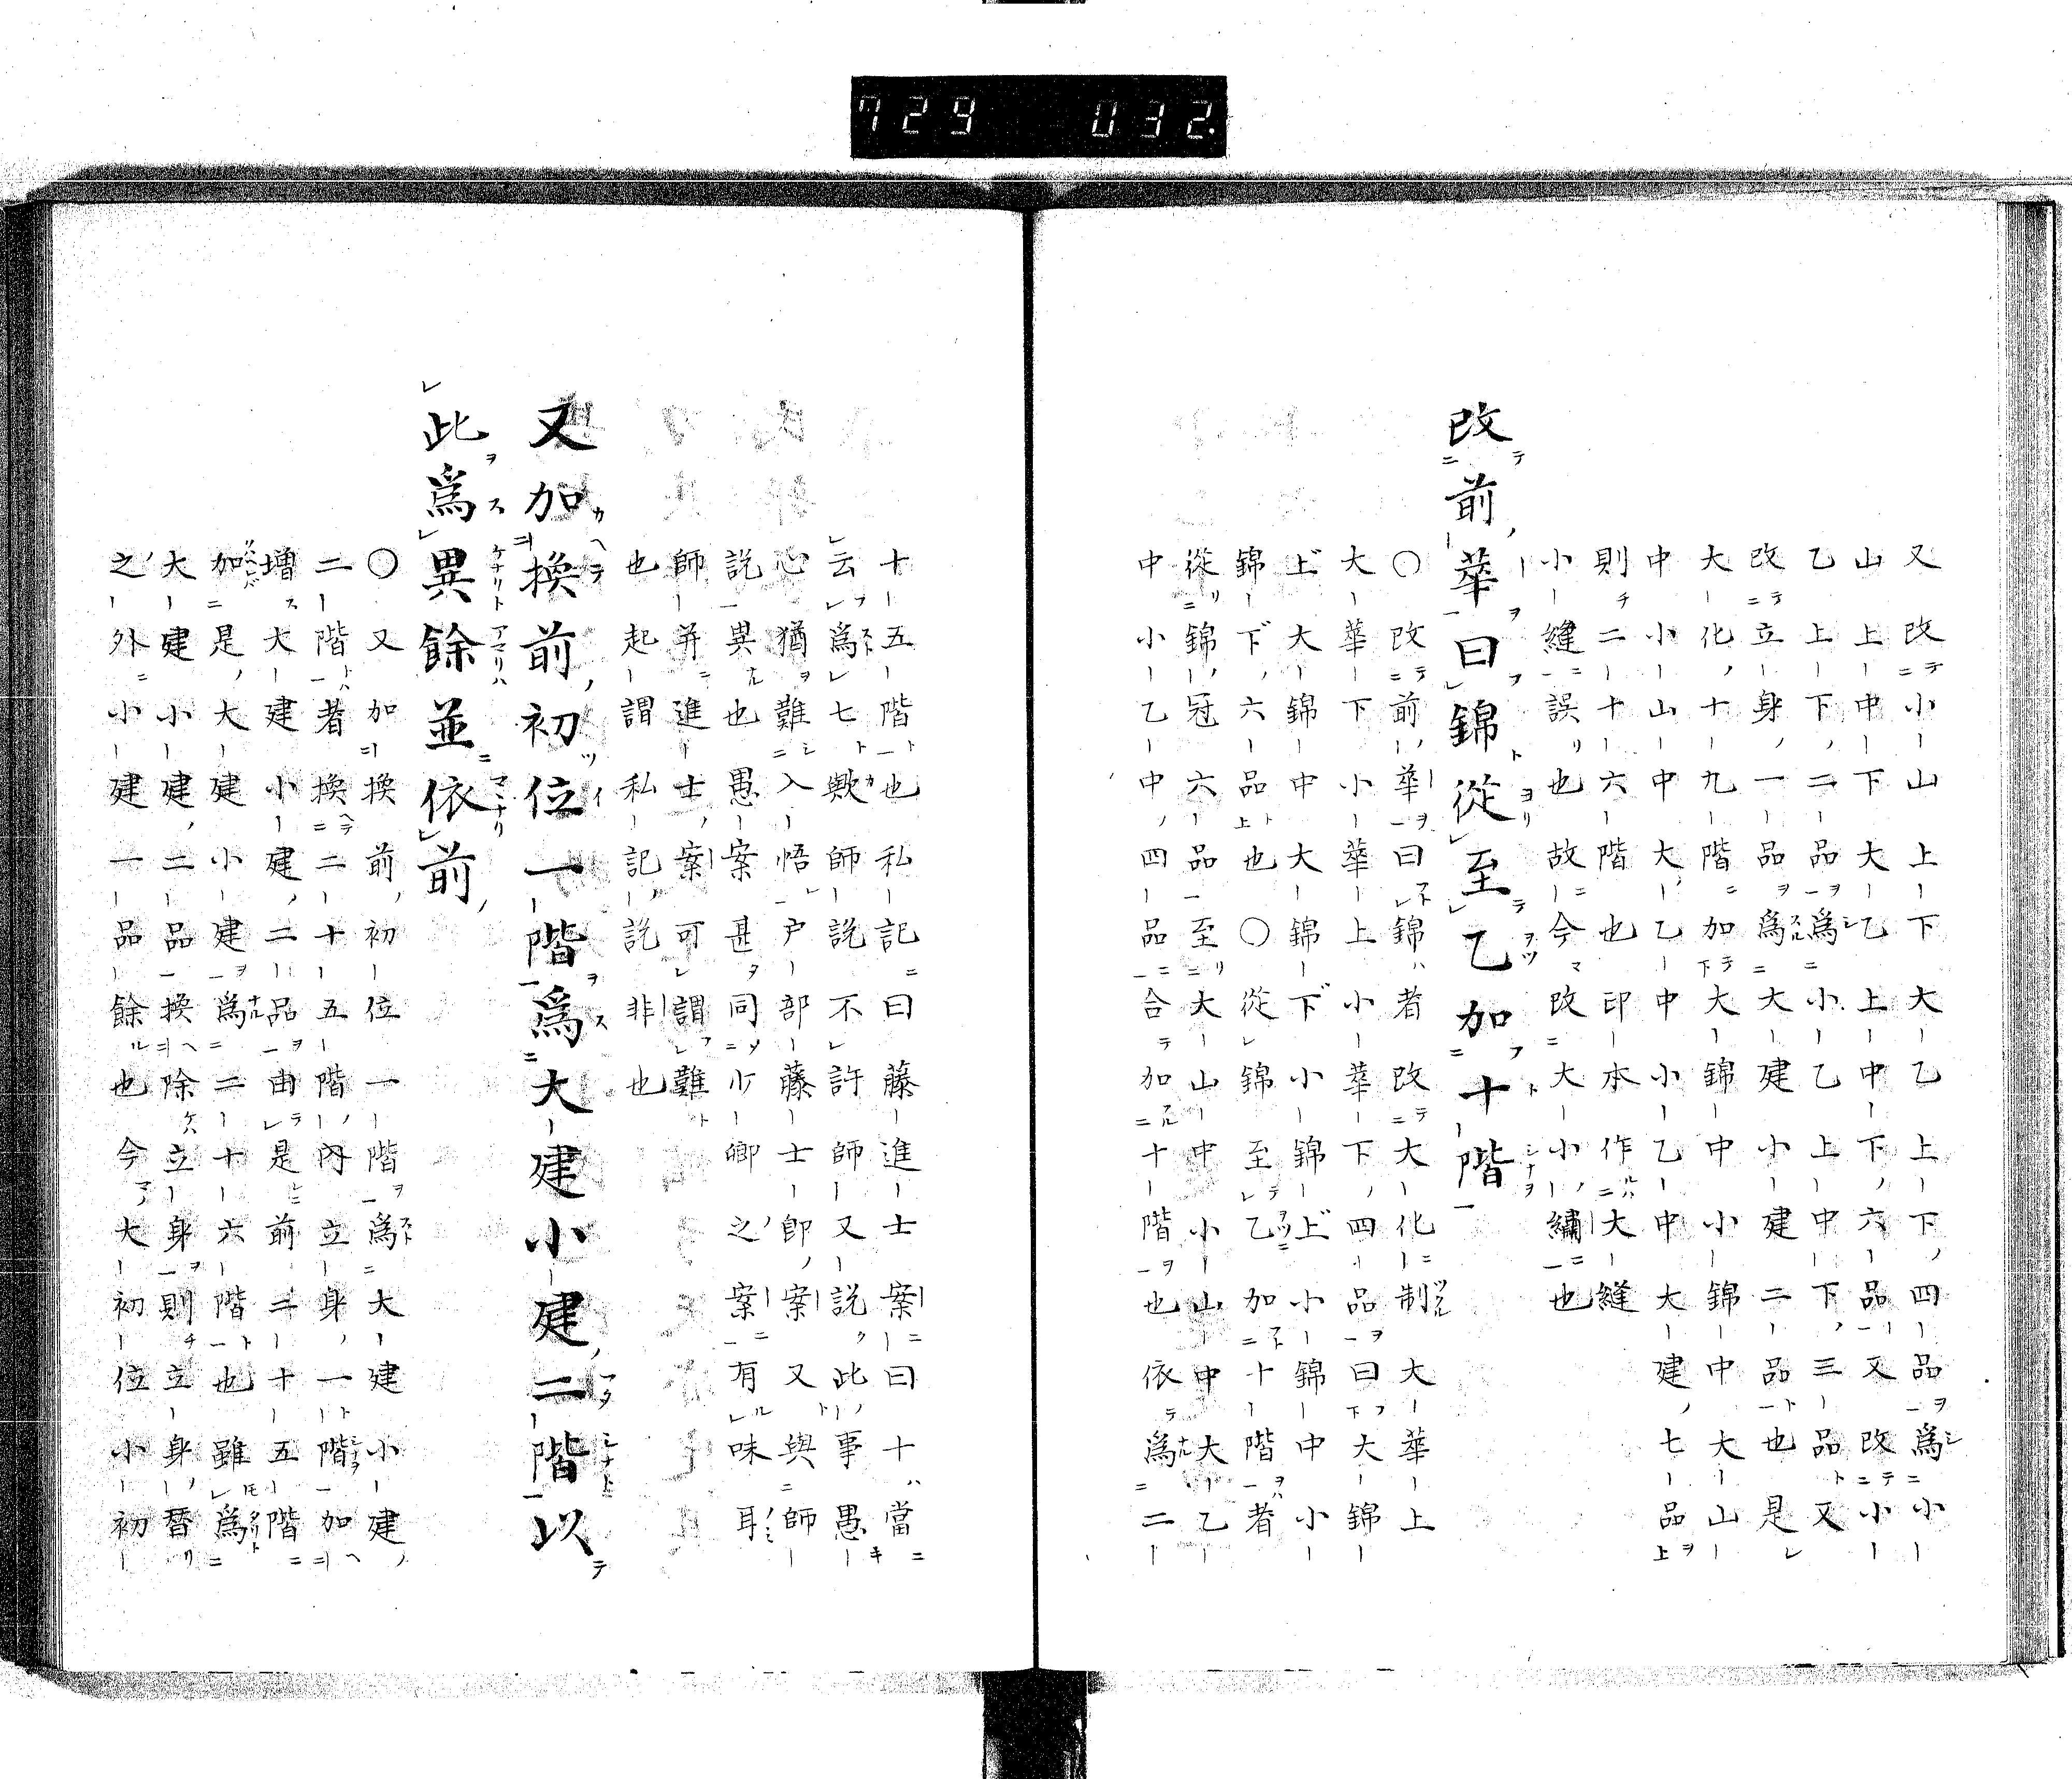 729 032.
又改小山上下大乙上下四品爲小
山上中下大乙上中下六品又改小
乙上下二品爲小乙上中下三品又
改立身一品爲大建小建二品也是
大化十九階加大錦中小錦中大山
中小山中大乙中小乙中大建七品
則二十六階也印本作大縫
小縫誤也故今改大小繡也
改前華曰錦從至乙加十階
〇改前華曰錦者改大化制大華上
大華下小華上小華下四品曰大錦
上大錦中大錦下小錦上小錦中小
錦下六品也〇從錦至乙加十階者
從錦冠六品至大山中小山中大乙
中小乙中四品合加十階也依爲二
十五階也私記曰藤進士案曰十當
云爲七歟師説不許師又説此事愚
心猶難入悟戸部藤士即案又與師
説異也愚案甚同少卿之案有味耳
師并進士案可謂難
也起謂私記説非也
又加換前初位一階爲大建小建二階以
此爲異餘並依前
〇又加換前初位一階爲大建小建
二階者換二十五階内立身一階加
増大建小建二品由是前二十五階
加是大建小建爲二十六階也雖爲
大建小建二品換除立身則立身替
之外小建一品餘也今大初位小初